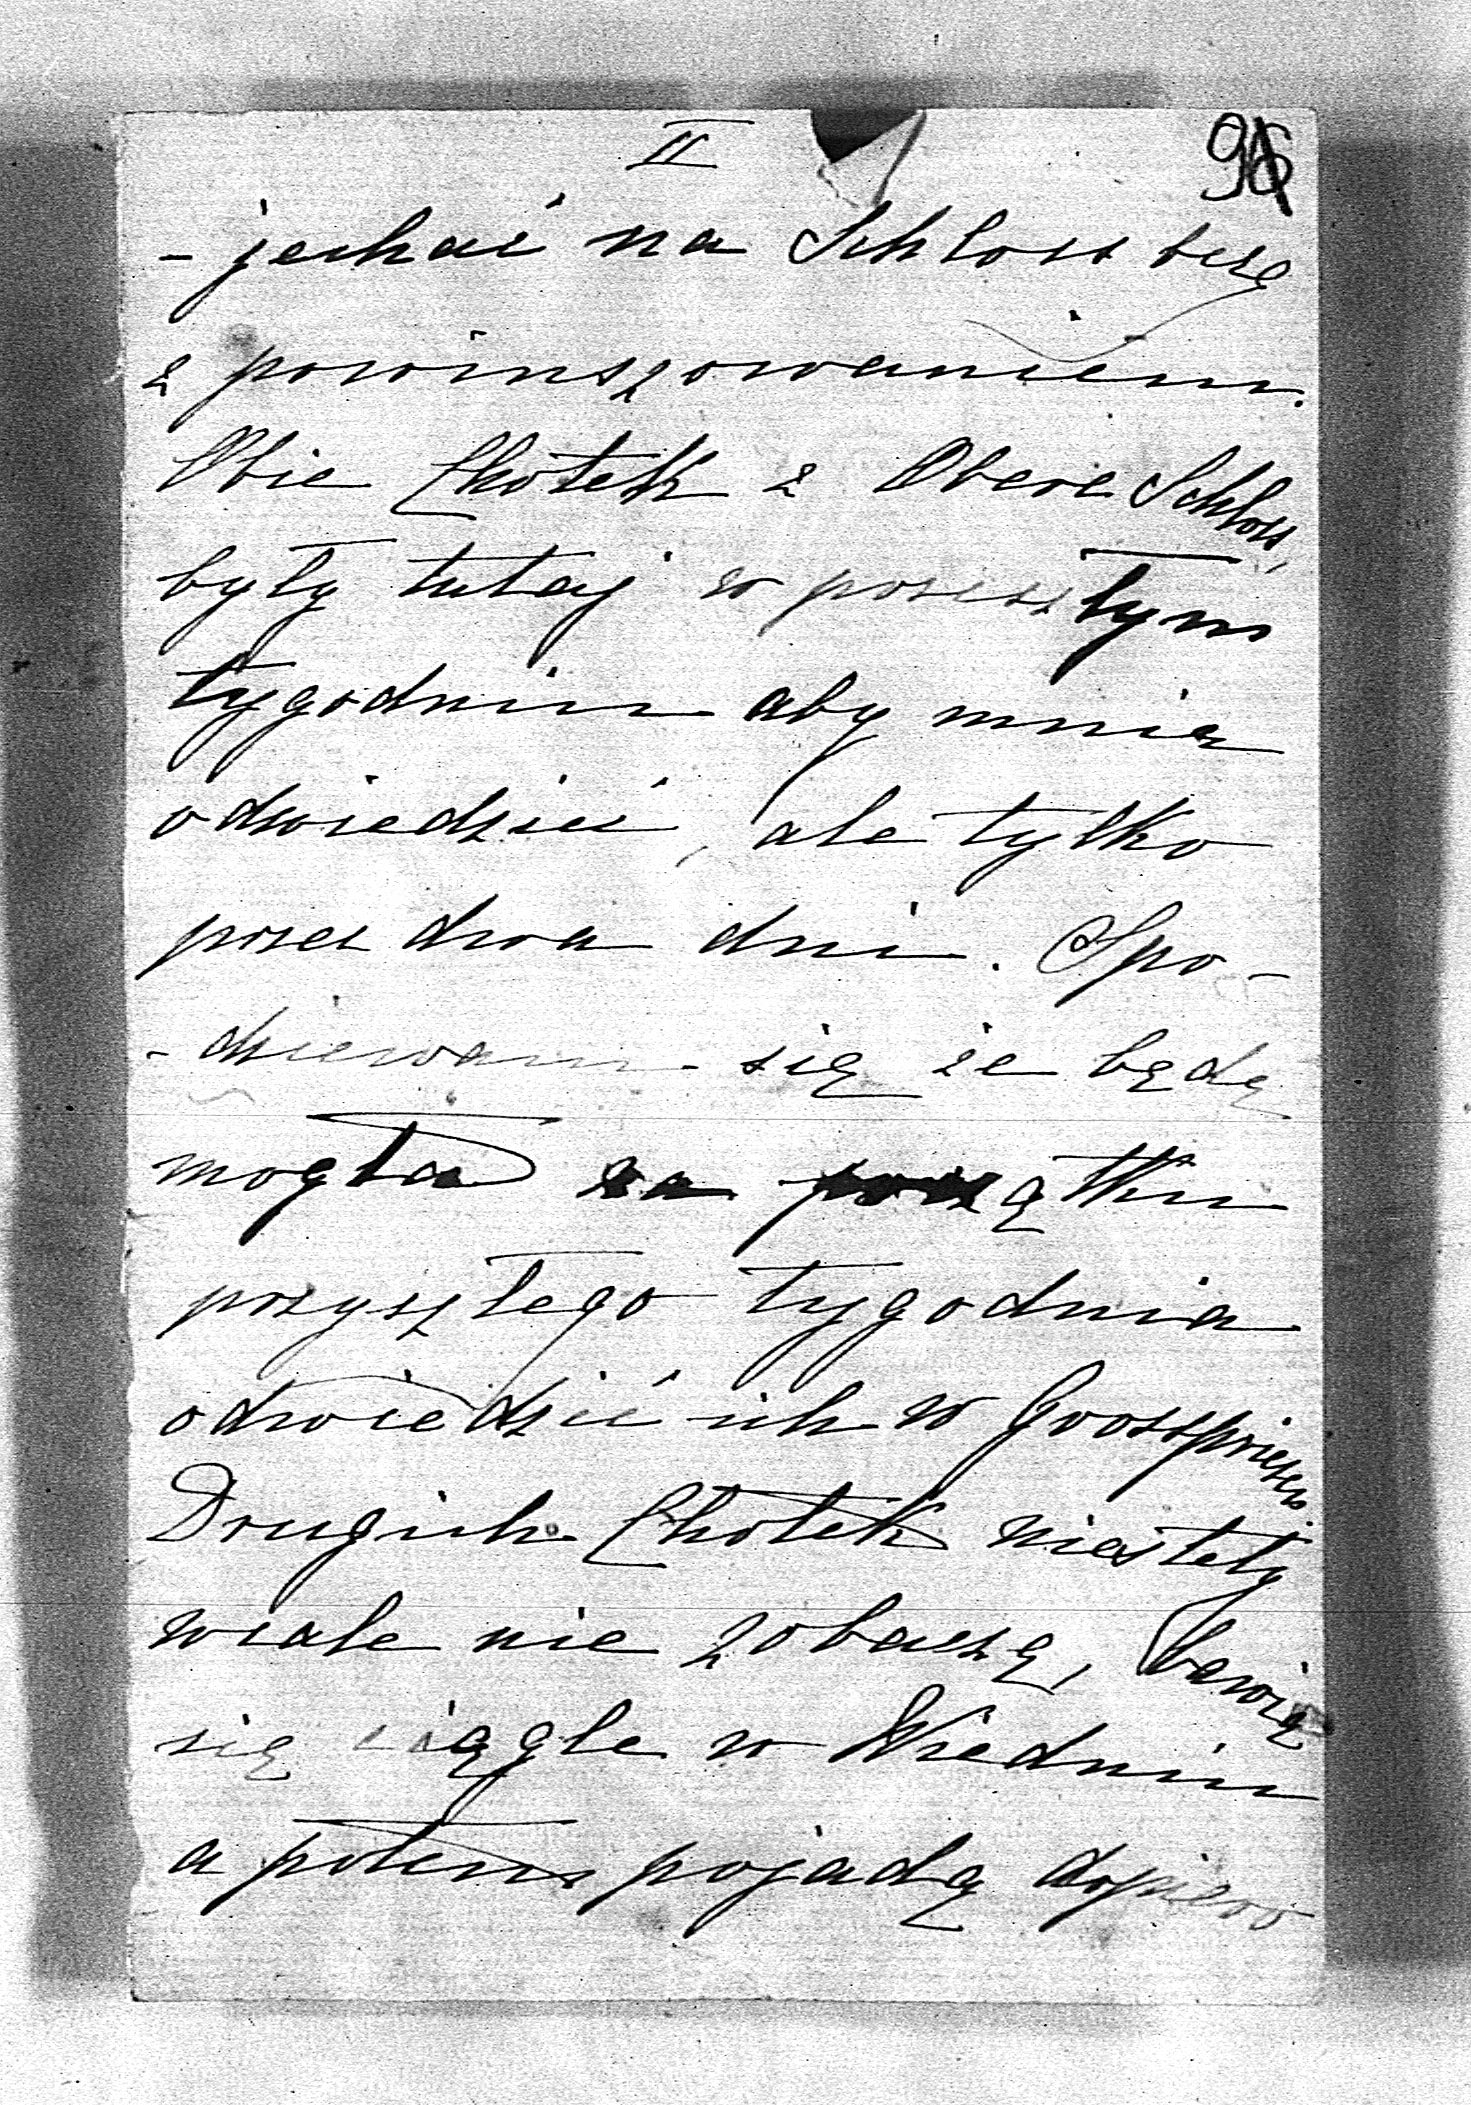 II
96
- jechać na Schlossberg
z powinszowaniem.
Obie Chotek z Obere Schloss,
były tutaj w poszczłym
tygodniu aby mnie
odwiedzić, ale tylko
przez dwa dni. Spo-
- dziewam się że będę
mogła na początku
przyszłego tygodnia
odwiedzić ich w Grosspriesen.
Drugich Chotek niestety
wcale nie zobaczę, bawią
się ciągle w Wiedniu
a potem pojadą dopiero